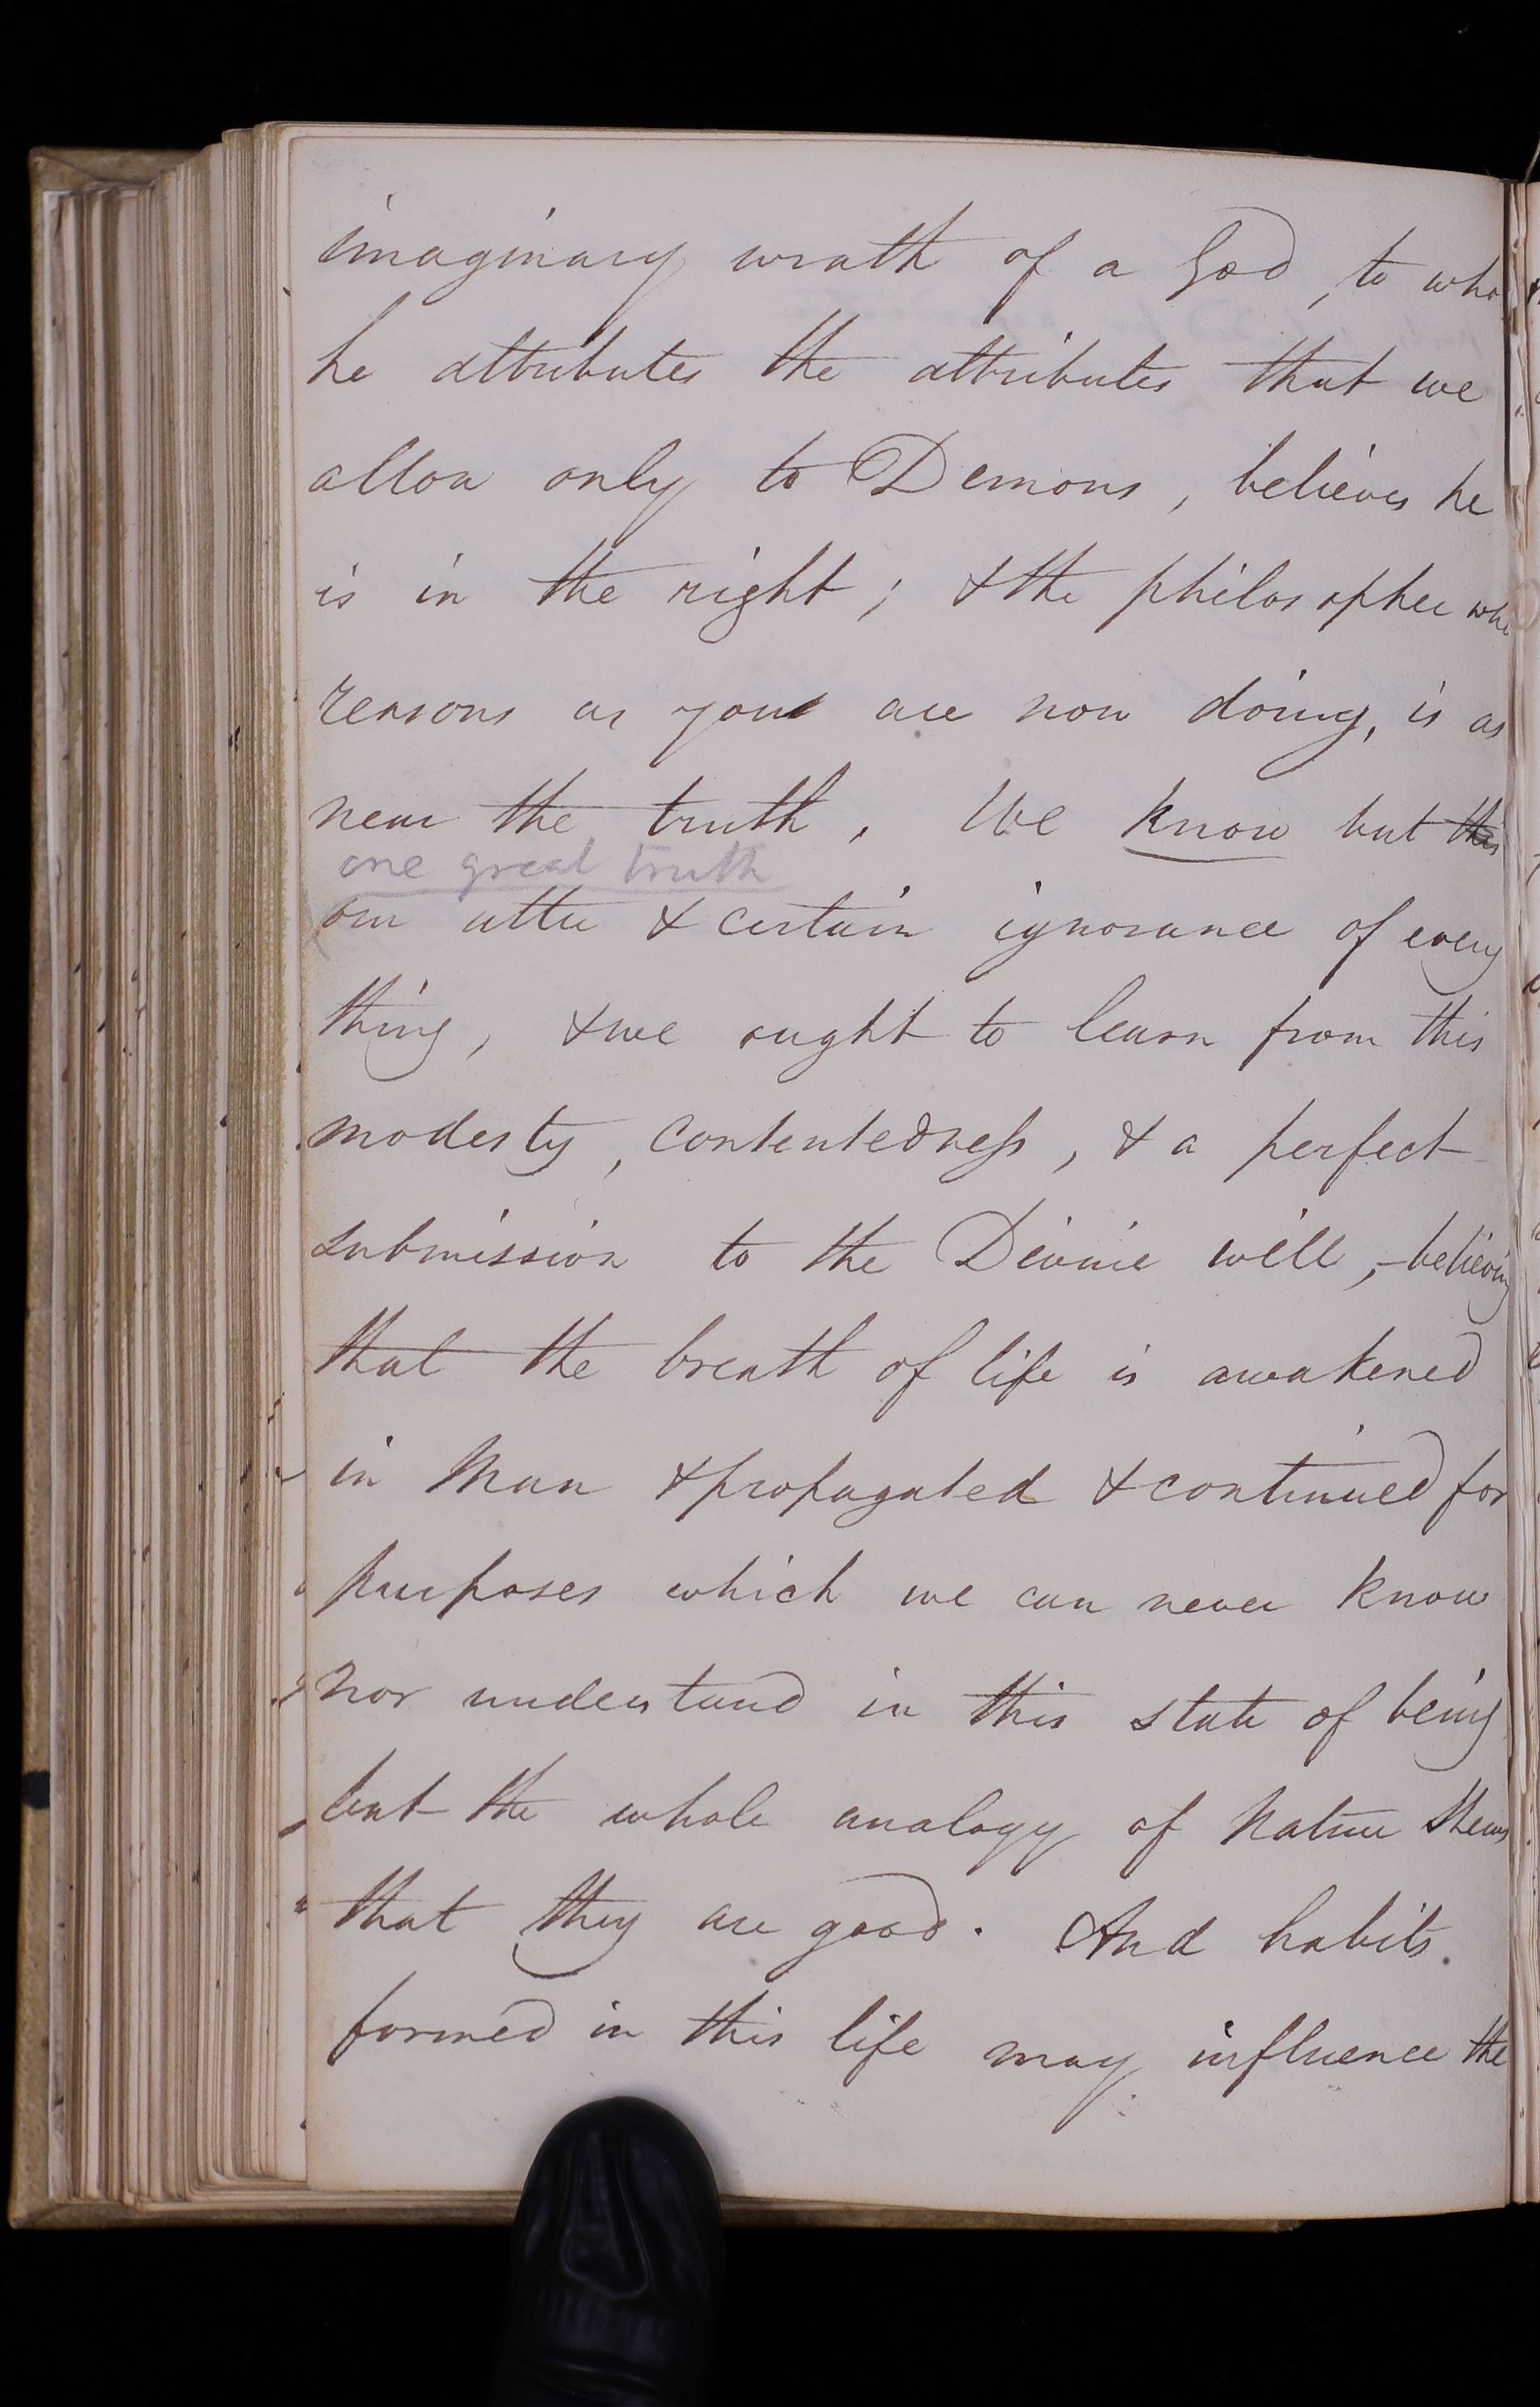 imaginary wrath of a God, to who
he attributes the attributes that we
allow only to Demons, believes he
is in the right; & the philosopher who
reasons as you are now doing, is as
near the truth. We know but this
one great truth
our utter & certain ignorance of every
thing, & we ought to learn from this
modesty, contentedness, & a perfect
submission to the Divine will, - believing
that the breath of life is awakened
in Man & propagated & continued for
purposes which we can never know
nor understand in this state of being
but the whole analogy of Nature shews
that they are good. And habits
formed in this life may influence the